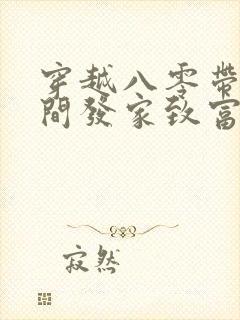 穿越八零帶
間發家致富
寂然